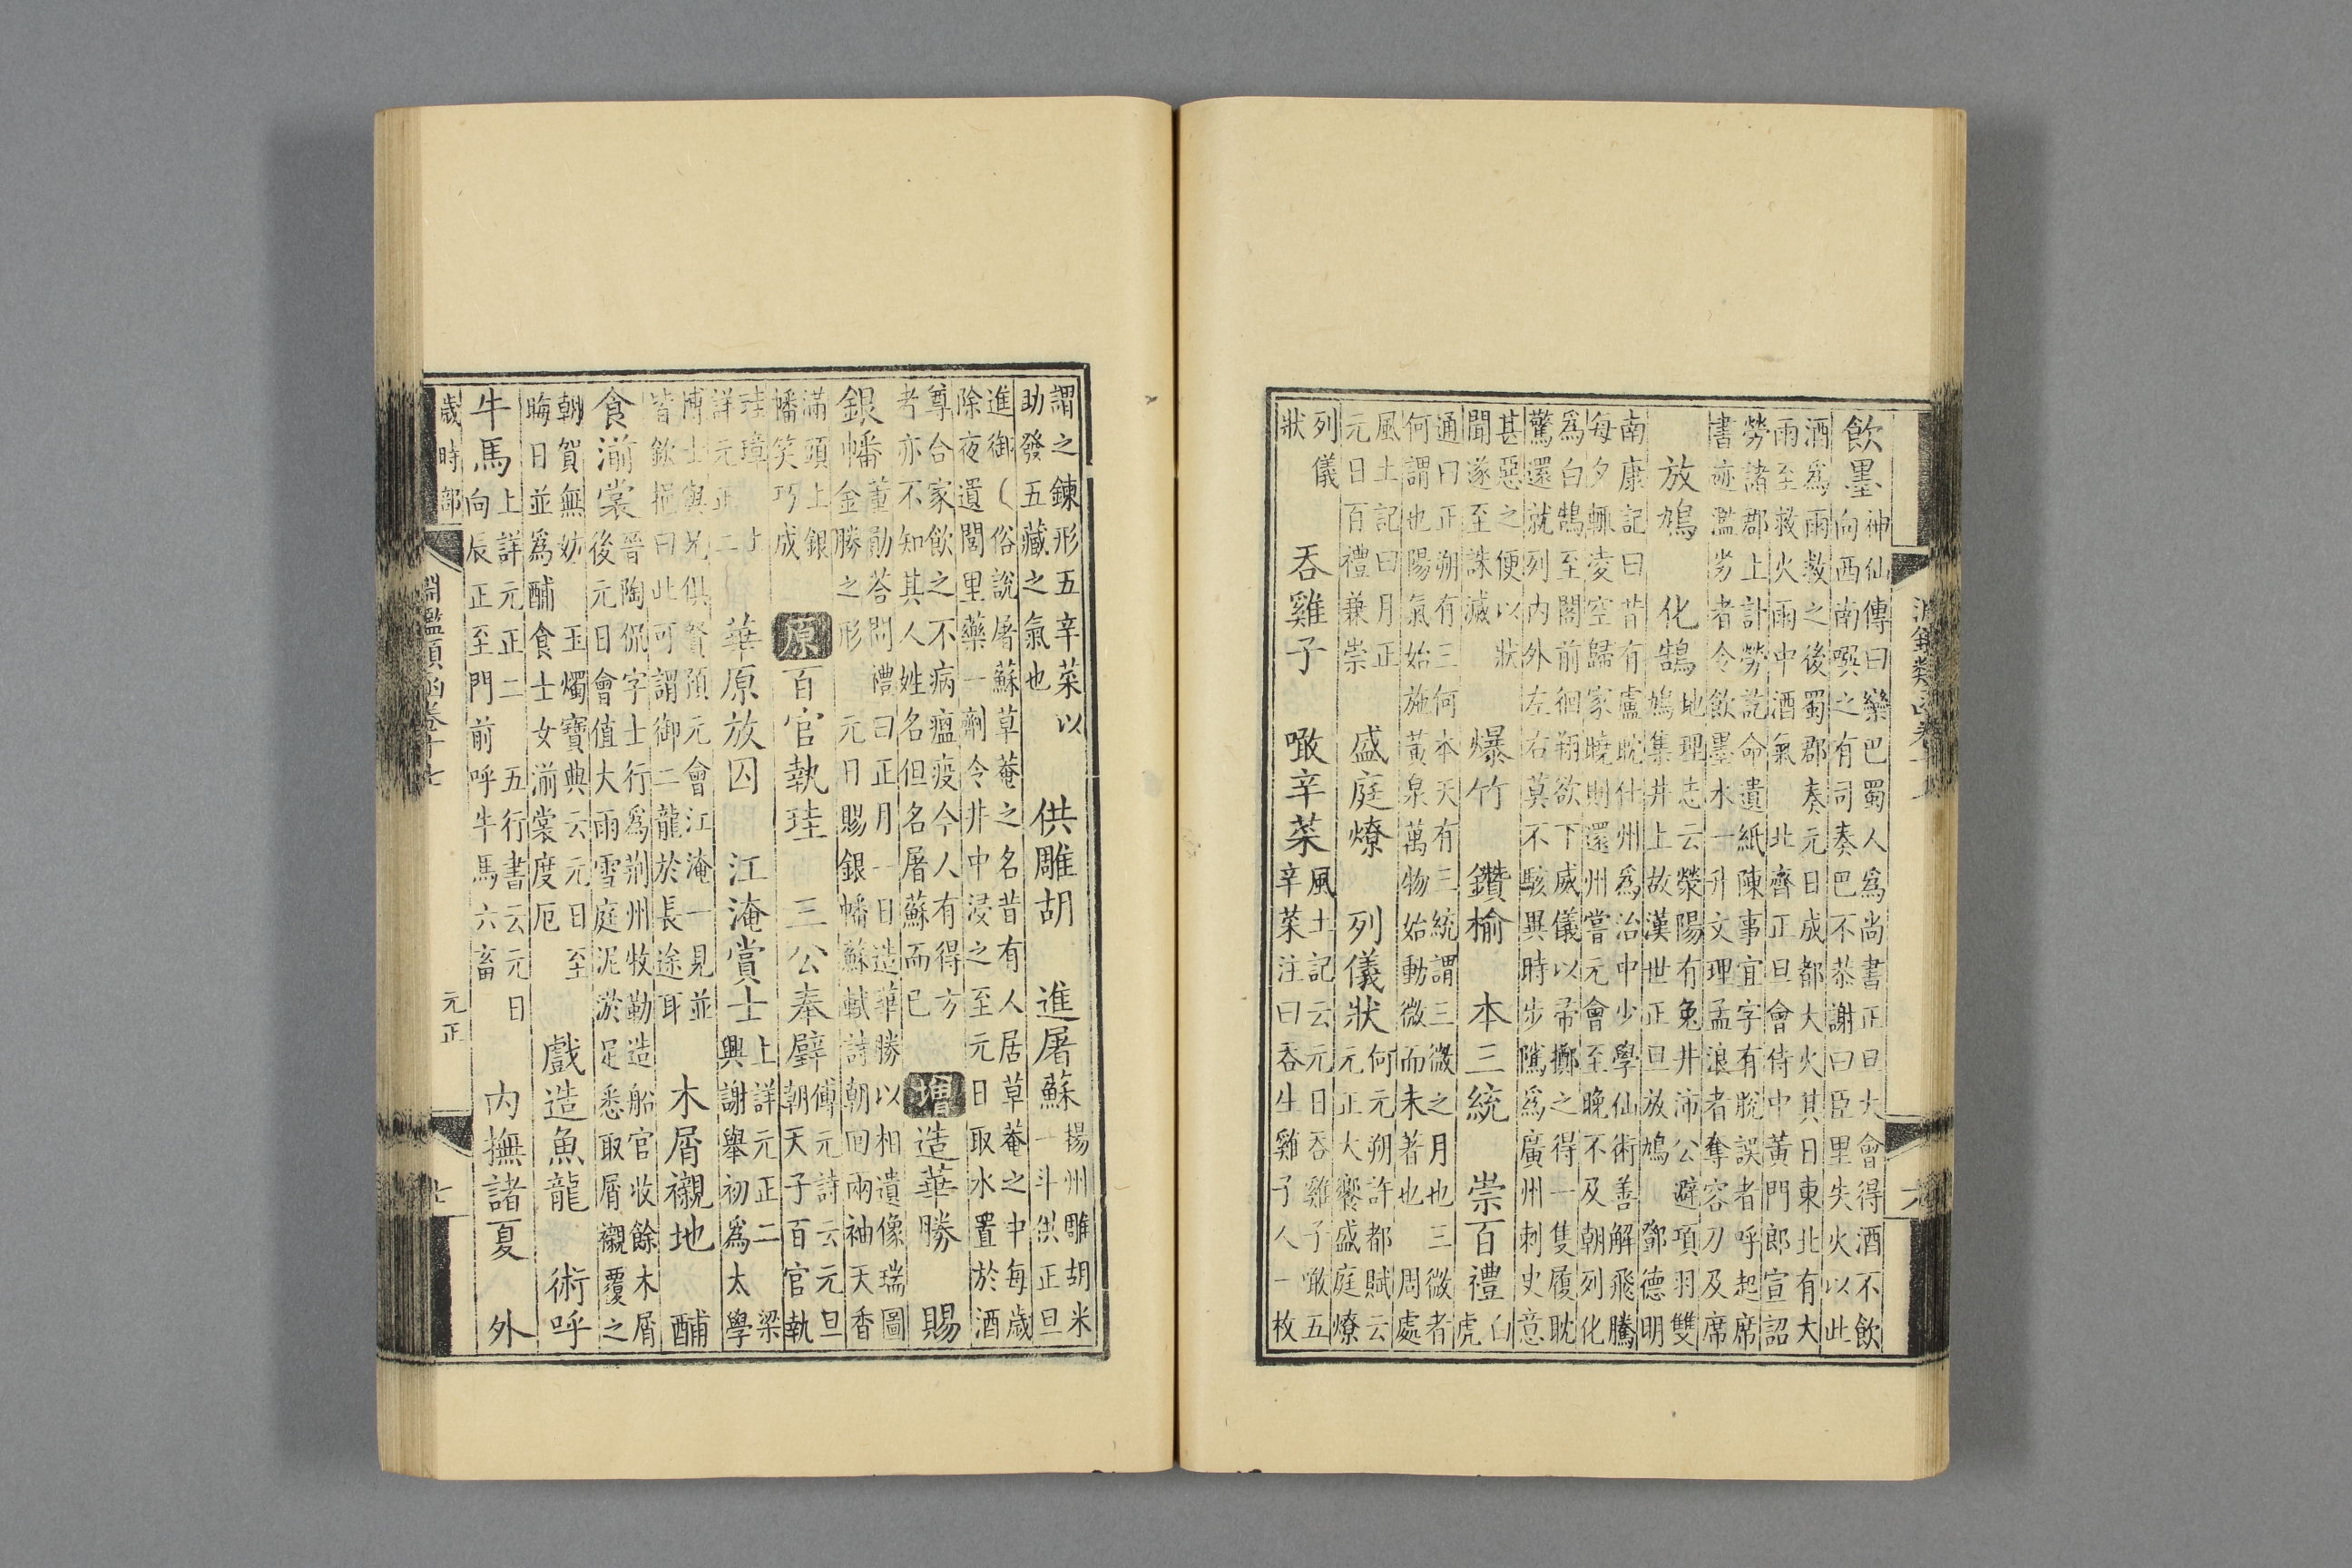 飲墨
神仙傳曰欒巴蜀人爲尚書正旦大會得酒不飲
向西南噀之有司奏巴不恭謝曰臣里失火以此
酒爲雨救之後蜀郡奏元日成都大火其日東北有大
雨至救火雨中酒氣 北齊正旦會侍中黃門郎宣詔
勞諸郡上計勞訖命遺紙陳事宜字有脫誤者呼起席
書迹濫劣者令飲墨水一升文理孟浪者奪容刀及席
放鳩 化鵠
地理志云滎陽有兔井沛公避項羽雙
鳩集井上故漢世正旦放鳩 鄧德明
南康記曰昔有盧耽仕州爲治中少學仙術善解飛騰
每夕輒凌空歸家曉則還州嘗元會至晚不及朝列化
爲白鵠至閣前徊翔欲下威儀以帚擲之得一隻履耽
驚還就列內外左右莫不駭異時步騭爲廣州刺史意
甚惡之便以狀
聞遂至誅滅
爆竹 鑽楡 本三統 崇百禮
白
虎
通曰正朔有三何本天有三統謂三微之月也三微者
何謂也陽氣始施黃泉萬物始動微而未著也 周處
風土記曰月正
元日百禮兼崇
盛庭燎 列儀狀
何元朔許都賦云
元正大饗盛庭燎
列儀
狀
吞雞子 噉辛菜
風土記云元日吞雞子噉五
辛菜注曰吞生雞子人一枚
謂之鍊形五辛菜以
助發五藏之氣也
供雕胡 進屠蘇
揚州雕胡米
一斗供正旦
進御(俗說屠蘇草菴之名昔有人居草菴之中每歲
除夜遺閭里藥一劑令井中浸之至元日取水置於酒
尊合家飲之不病瘟疫今人有得方
者亦不知其人姓名但名屠蘇而已
增 造華勝 賜
銀幡
董勛荅問禮曰正月一日造華勝以相遺像瑞圖
金勝之形 元日賜銀幡蘇軾詩朝回兩袖天香
滿頭上銀
幡笑巧成
原 百官執珪 三公奉璧
傅元詩云元旦
朝天子百官執
珪璋 上
詳元正二
華原放囚 江淹賞士
上詳元正二 梁
興謝舉初爲太學
博士與兄供賢預元會江淹一見並
皆欽挹曰此可謂御二龍於長途耳
木屑襯地 酺
食湔裳
晉陶侃字士行爲荆州牧勒造船官收餘木屑
後元日會值大雨雪庭泥淤足悉取屑襯覆之
朝賀無妨 玉燭寶典云元日至
晦日並爲酺食士女湔裳度厄
戲造魚龍 術呼
牛馬
上詳元正二 五行書云元日
向辰正至門前呼牛馬六畜
內撫諸夏 外
歲時部
淵鑑類函卷十七
元正